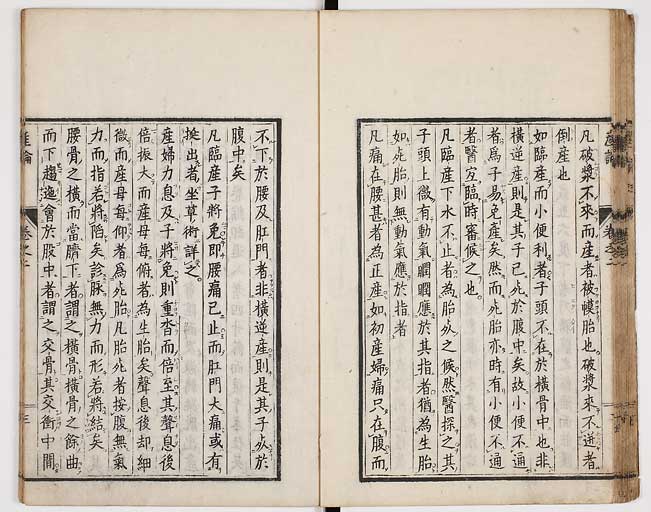 凡破漿不來而産者被膜胎也破漿來不逆者
倒産也
如臨産而小便利者子頭不在於橫骨中也非
橫逆産則是其子已死於腹中矣故小便不通
者爲子易免産矣然而死胎亦時有小便不通
者醫宜臨時審候之也
凡臨産下水不止者為胎死之候然醫探之其
子頭上微有動氣䐃䐃應於其指者猶為生胎
如死胎則無動氣應於指者
凡痛在腰甚者為正産如初産婦痛只在腹而
不下於腰及肛門者非橫逆産則是其子死於
腹中矣
凡臨産子將免即腰痛已止而肛門大痛或有
挺出者坐草術詳之
産婦力息及子將免則重沓而倍至其聲息後
倍振大而産母每俯者為生胎矣聲息後却細
微而産母每仰者為死胎凡胎死者按腹無氣
力而指若將陷矣診脉無力而形若將結矣
腰骨之橫而當臍下者謂之橫骨橫骨之餘曲
而下趨迤會於股中者謂之交骨其交衝中間
産論
卷之二
三